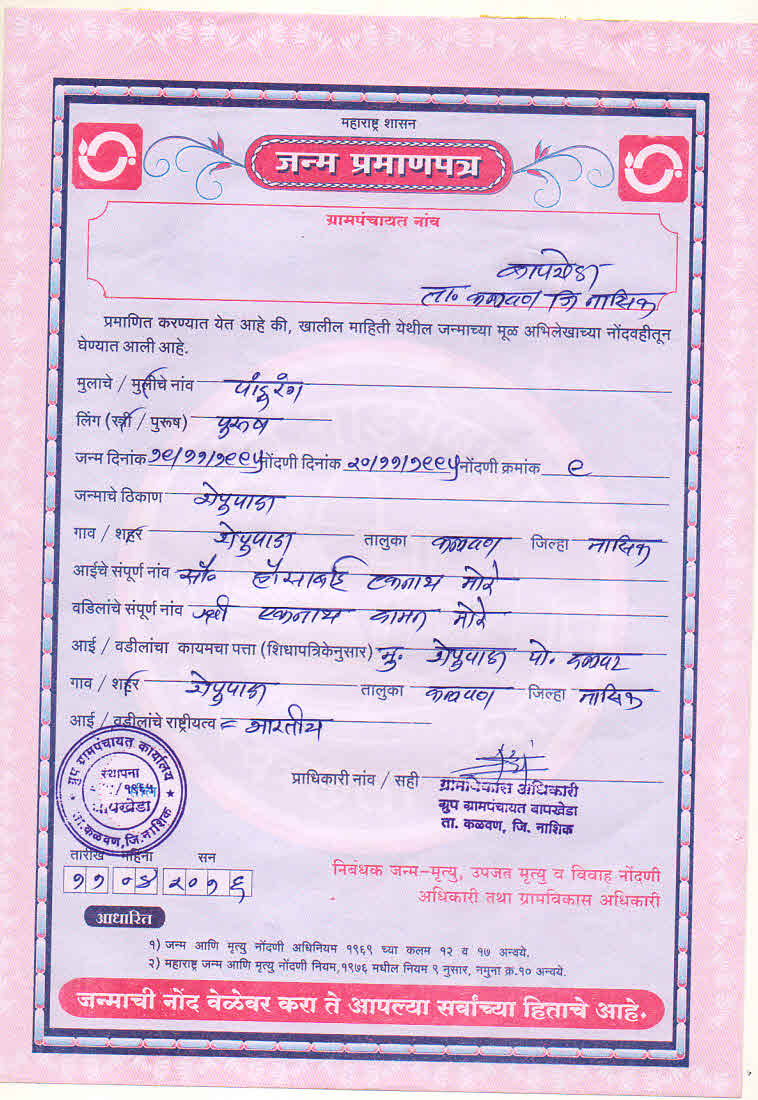 महाराष्ट्र शासन
जन्म प्रमाणपत्र
ग्रामपंचायत नांव
बापखेडा
ता. कळवण जि नासिक
प्रमाणित करण्यात येत आहे की, खालील माहिती येथील जन्माच्या मूळ अभिलेखाच्या नोंदवहीतून
घेण्यात आली आहे.
मुलाचे / मुलीचे नांव पांडूरंग
लिंग (स्त्री / पुरूष) पुरूष
जन्म दिनांक १९/११/१९९५ नोंदणी दिनांक २०/११/१९९५ नोंदणी क्रमांक ९
जन्माचे ठिकाण शेपुपाडा
गाव / शहर शेपुपाडा तालुका कळवण जिल्हा नासिक
आईचे संपूर्ण नांव सौ. हौसाबाई एकनाथ मोरे
वडिलांचे संपूर्ण नांव श्री एकनाथ कामन मोरे
आई / वडीलांचा कायमचा पत्ता (शिधापत्रिकेनुसार) मु. शेपुपाडा पो.
गाव / शहर शेपुपाडा तालुका कळवण जिल्हा नासिक
आई / वडीलांचे राष्ट्रीयत्व = भारतीय
ग्रुप ग्रामपंचायत कार्यालय
स्थापना
बापखेडा
ता.कळवण,जि.नाशिक
प्राधिकारी नांव / सही
ग्रामविकास अधिकारी
ग्रुप ग्रामपंचायत बापखेडा
ता. कळवण, जि. नाशिक
तारीख महिना सन
११ ०४ २०१६
निबंधक जन्म-मृत्यु, उपजत मृत्यु व विवाह नोंदणी
अधिकारी तथा ग्रामविकास अधिकारी
आधारित
१) जन्म आणि मृत्यु नोंदणी अधिनियम १९६९ च्या कलम १२ व १७ अन्वये.
२) महाराष्ट्र जन्म आणि मृत्यु नोंदणी नियम,१९७६ मधील नियम ९ नुसार, नमुना क्र.१० अन्वये.
जन्माची नोंद वेळेवर करा ते आपल्या सर्वांच्या हिताचे आहे.